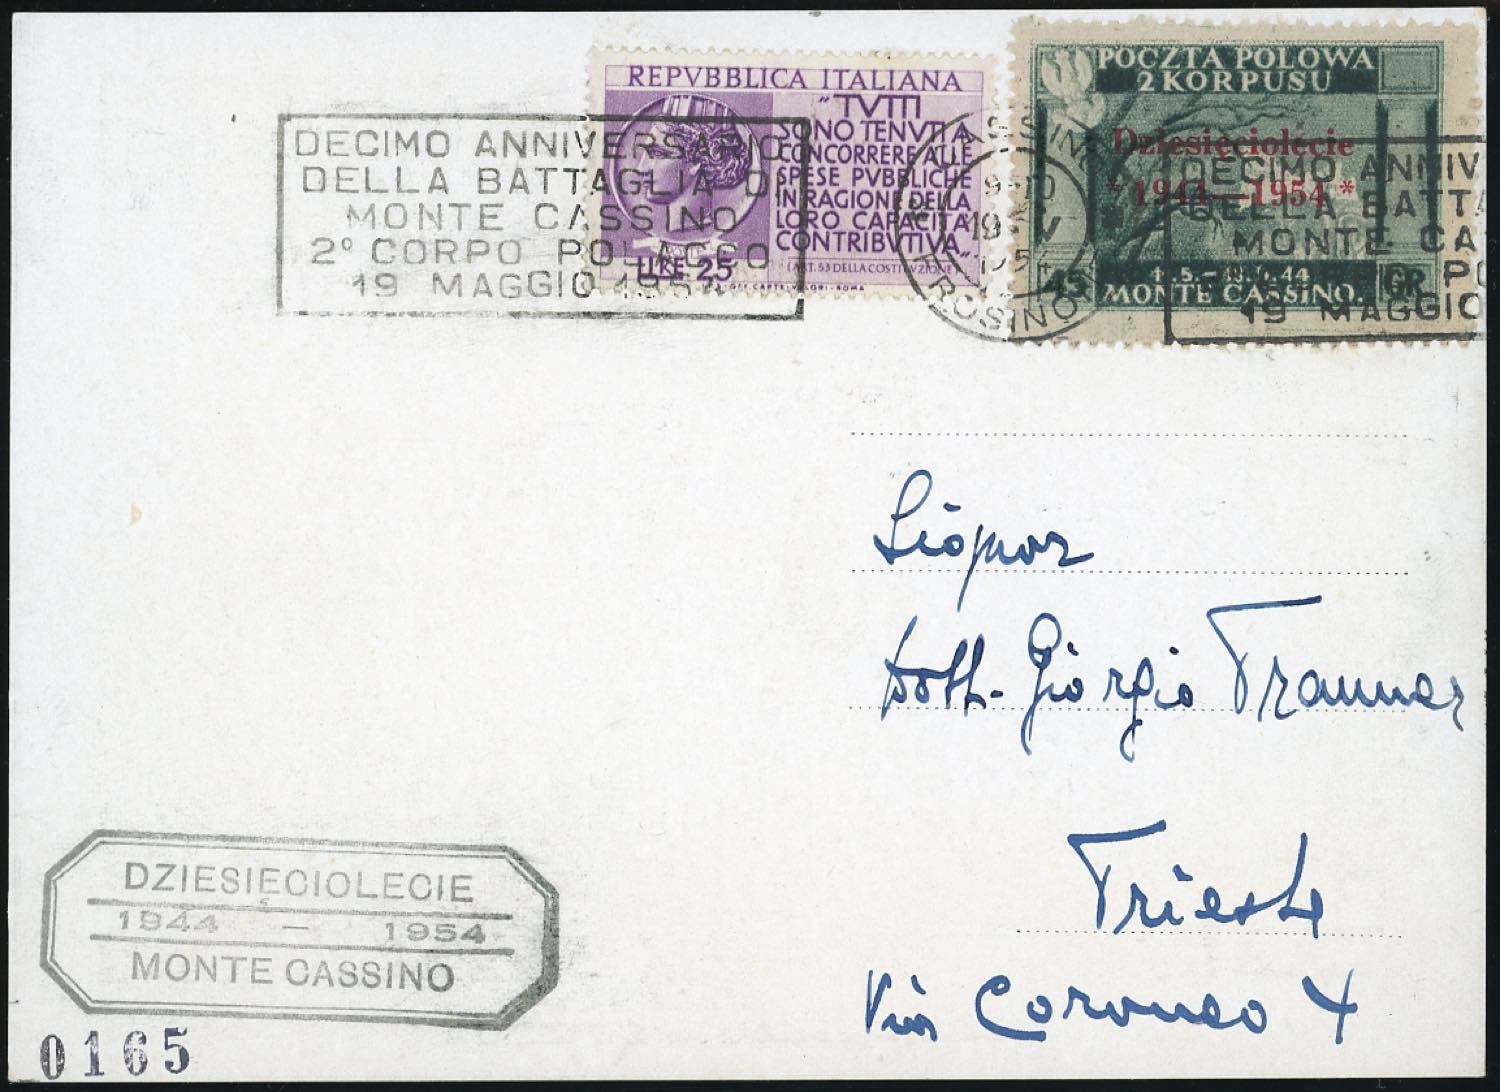 REPVBBLICA ITALIANA
"TVTTI
SONO TENVTI A
CONCORRERE ALLE
SPESE PVBBLICHE
IN RAGIONE DELLA
LORO CAPACITÀ
CONTRIBVTIVA„
(ART. 53 DELLA COSTITVZIONE)
LIRE 25
OFF. CARTE-VALORI-ROMA
DECIMO ANNIVERSARIO
DELLA BATTAGLIA DI
MONTE CASSINO
2° CORPO POLACCO
19 MAGGIO 1954
POCZTA POLOWA
2 KORPUSU
Dziesięciolecie
* 1944—1954 *
45 GR
MONTE CASSINO.
CASSINO
FROSINONE
19 V
1954
DECIMO ANNIV
DELLA BATTA
MONTE CA
PO
19 MAGGIO
Signor
Dott. Giorgio
Trieste
Via Coroneo 4
DZIESIĘCIOLECIE
1944 — 1954
MONTE CASSINO
0165